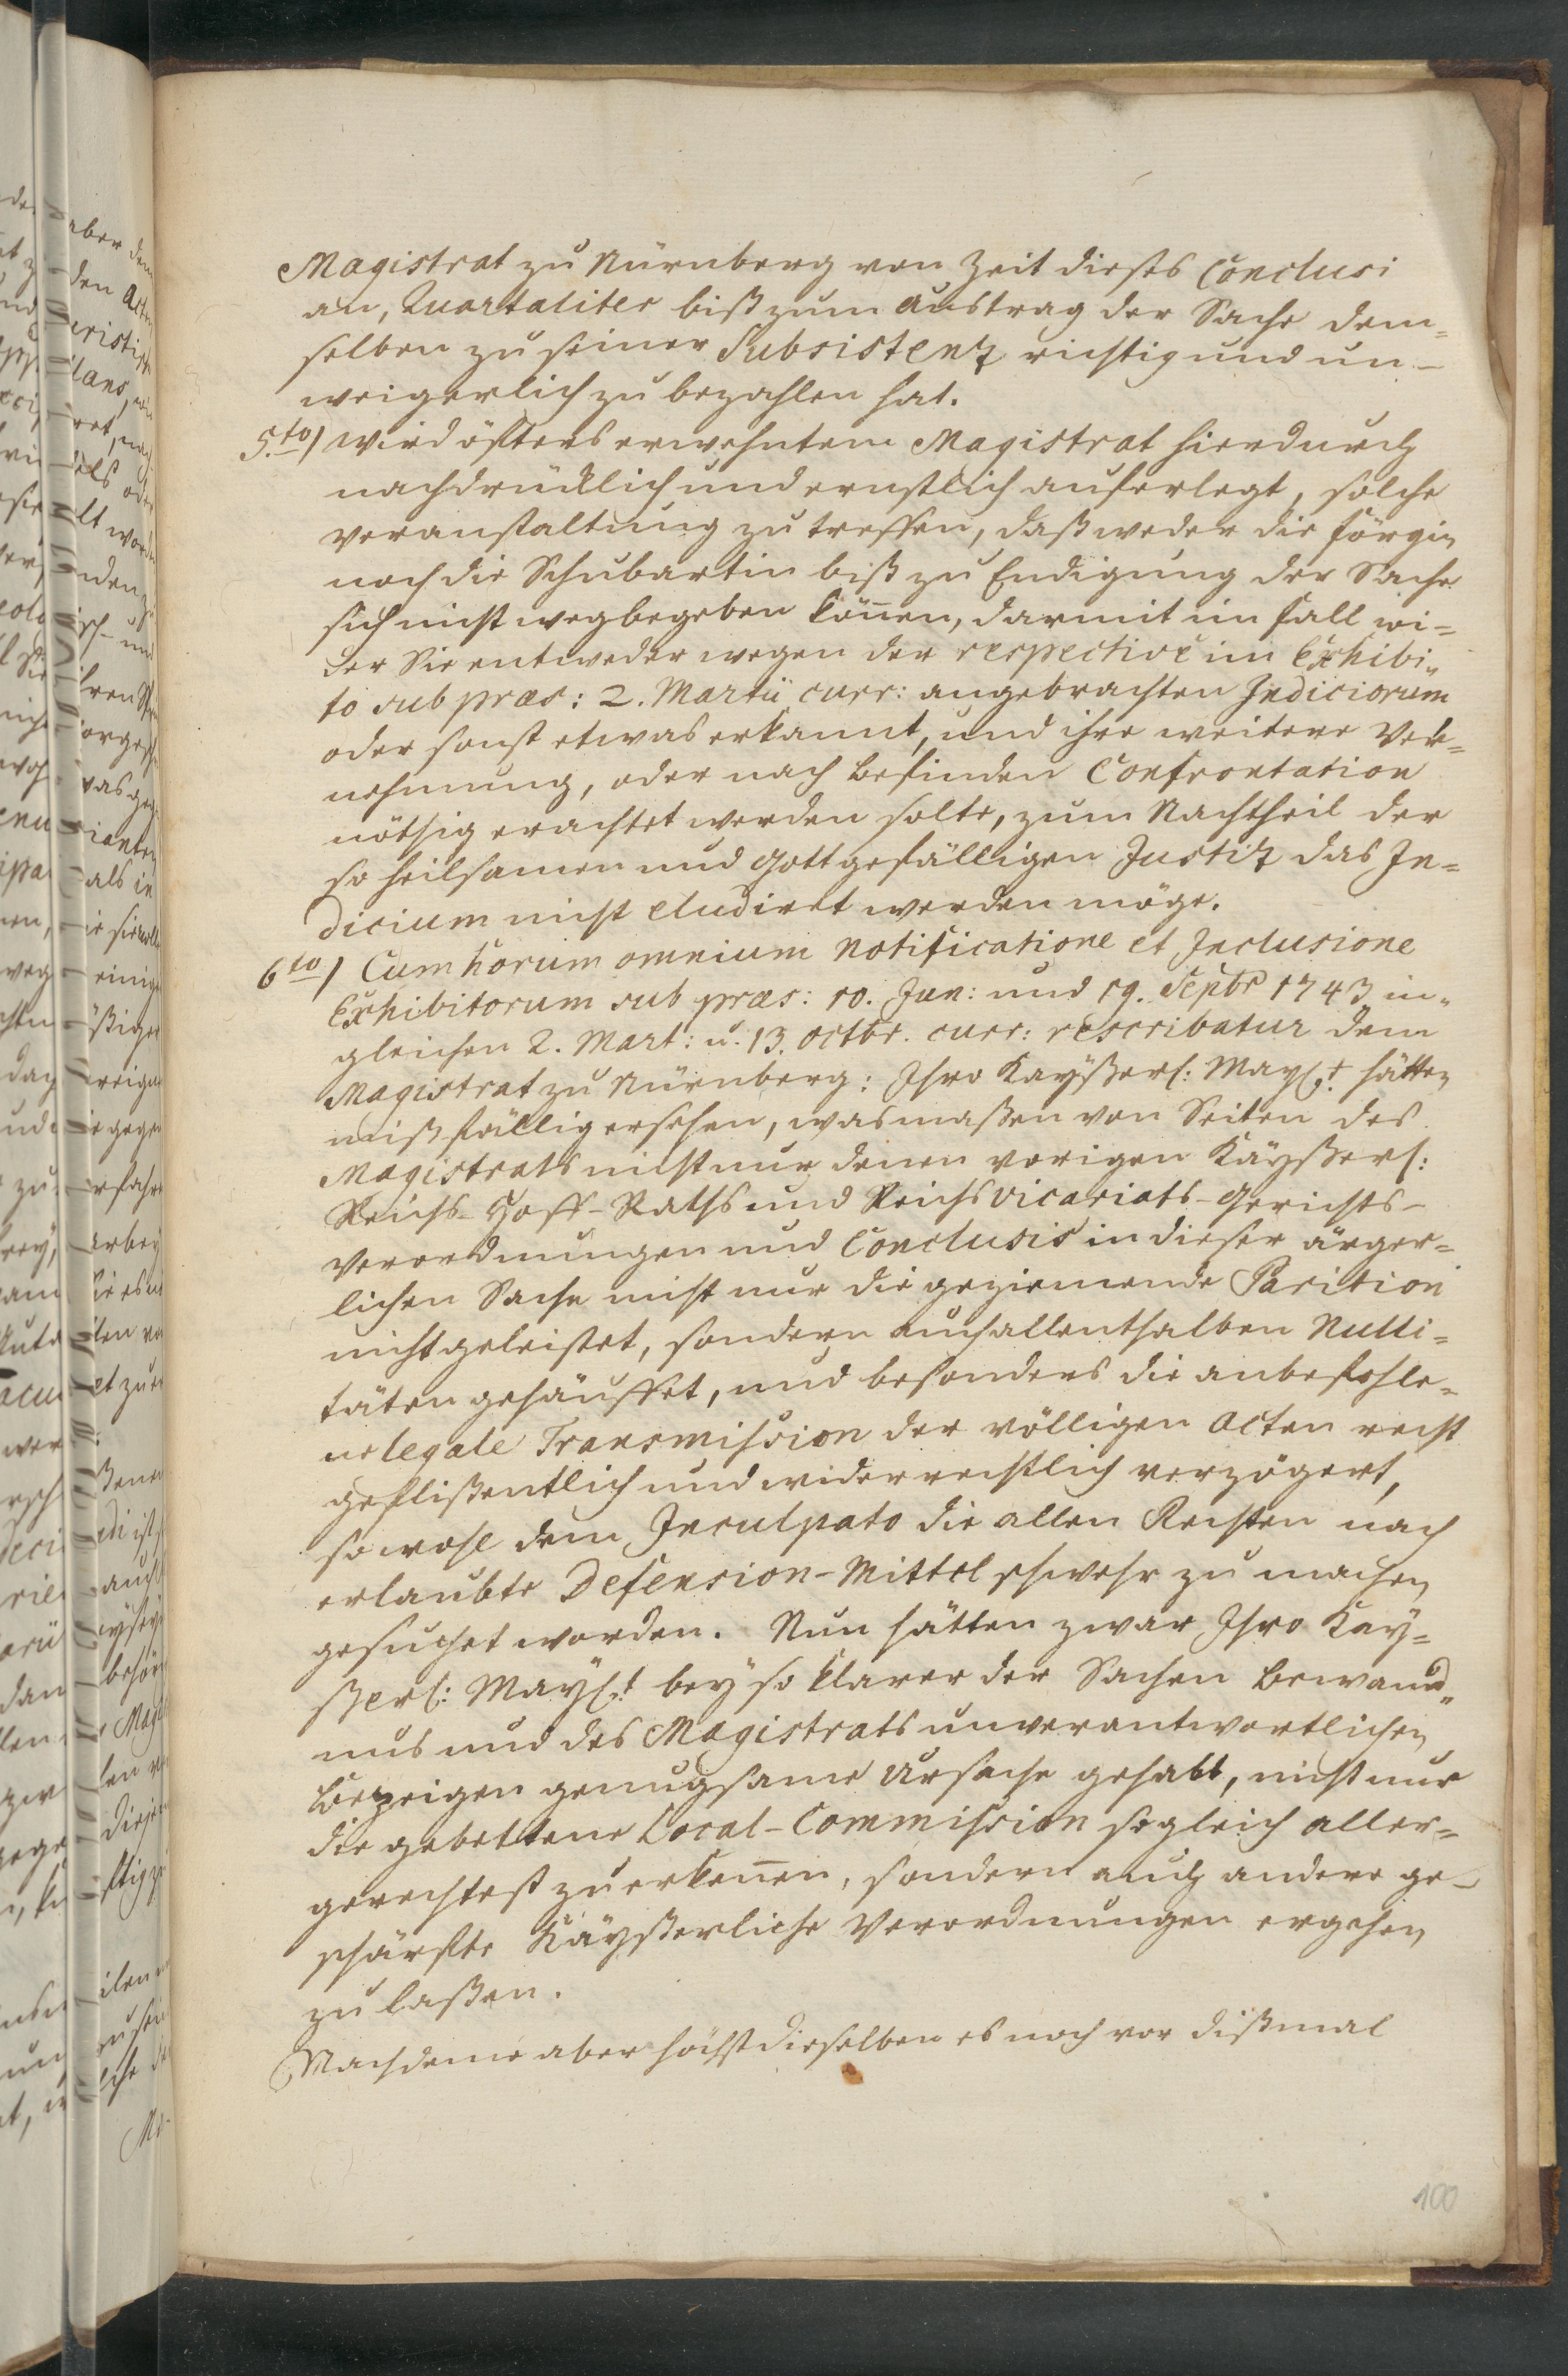 Magistrat zu Nürnberg von Zeit dieses Conclusi
an, Quartaliter biß zum Austrag der Sache dem-
selben zu seiner Subsistenz richtig und un-
weigerlich zu bezahlen hat.
5.to) wird öffters erwehntem Magistrat hierdurch
nachdrücklich und ernstlich auferlegt, solche
Veranstaltung zu treffen, daß weder die
noch die Schubartin biß zu Endigung der Sache
sich nicht wegbegeben können, darmit im fall wi-
der Sie entweder wegen der respective im Exhibi-
to sub præs: 2. Martii curr: angebrachten Indiciorum
oder sonst etwas erkannt, und ihre weitere Ver-
nehmung, oder nach befinden Confrontation
nöthig erachtet werden solte, zum Nachtheil der
so heilsamen und Gott gefälligen Justiz das Ju-
dicium nicht eludiret werden möge.
6to) Cum horum omnium notificatione et Inclusione
Exhibitorum sub præs: 10. Jun: und 19. Septbr 1743 in-
gleichen 2. Mart: u. 13. Octbr. curr: rescribatur dem
Magistrat zu Nürnberg: Ihro Kayßerl: Mayst. hätten
mißfällig ersehen, wasmaßen von Seiten des
Magistrats nicht nur denen vorigen Kayßerl:
Reichs-Hoff-Raths und Reichs Vicariats-Gerichts-
Verordnungen und Conclusis in dieser ärger-
lichen Sache nicht nur die geziemende Parition
nicht geleistet, sondern auch allenthalben Nulli-
täten gehäuffet, und besonders die anbefohle-
ne legale Transmission der völligen Acten recht
geflißentlich und widerrechtlich verzögert,
so wohl dem Inculpato die allen Rechten nach
erlaubte Defension-Mittel schwehr zu machen
gesuchet worden. Nun hätten zwar Ihro Kay-
ßerl: Mayst. bey so klarer der Sachen bewand-
nus und des Magistrats unverantwortlichen
Bezeigen genugsame Ursache gehabt, nicht nur
die gebettene Local-Commission sogleich aller-
gerechtest zu erkennen, sondern auch andere ge-
schärffte Kayßerliche Verordnungen ergehen
zu laßen.
Nachdeme aber höchst dieselben es noch vor dißmal
100